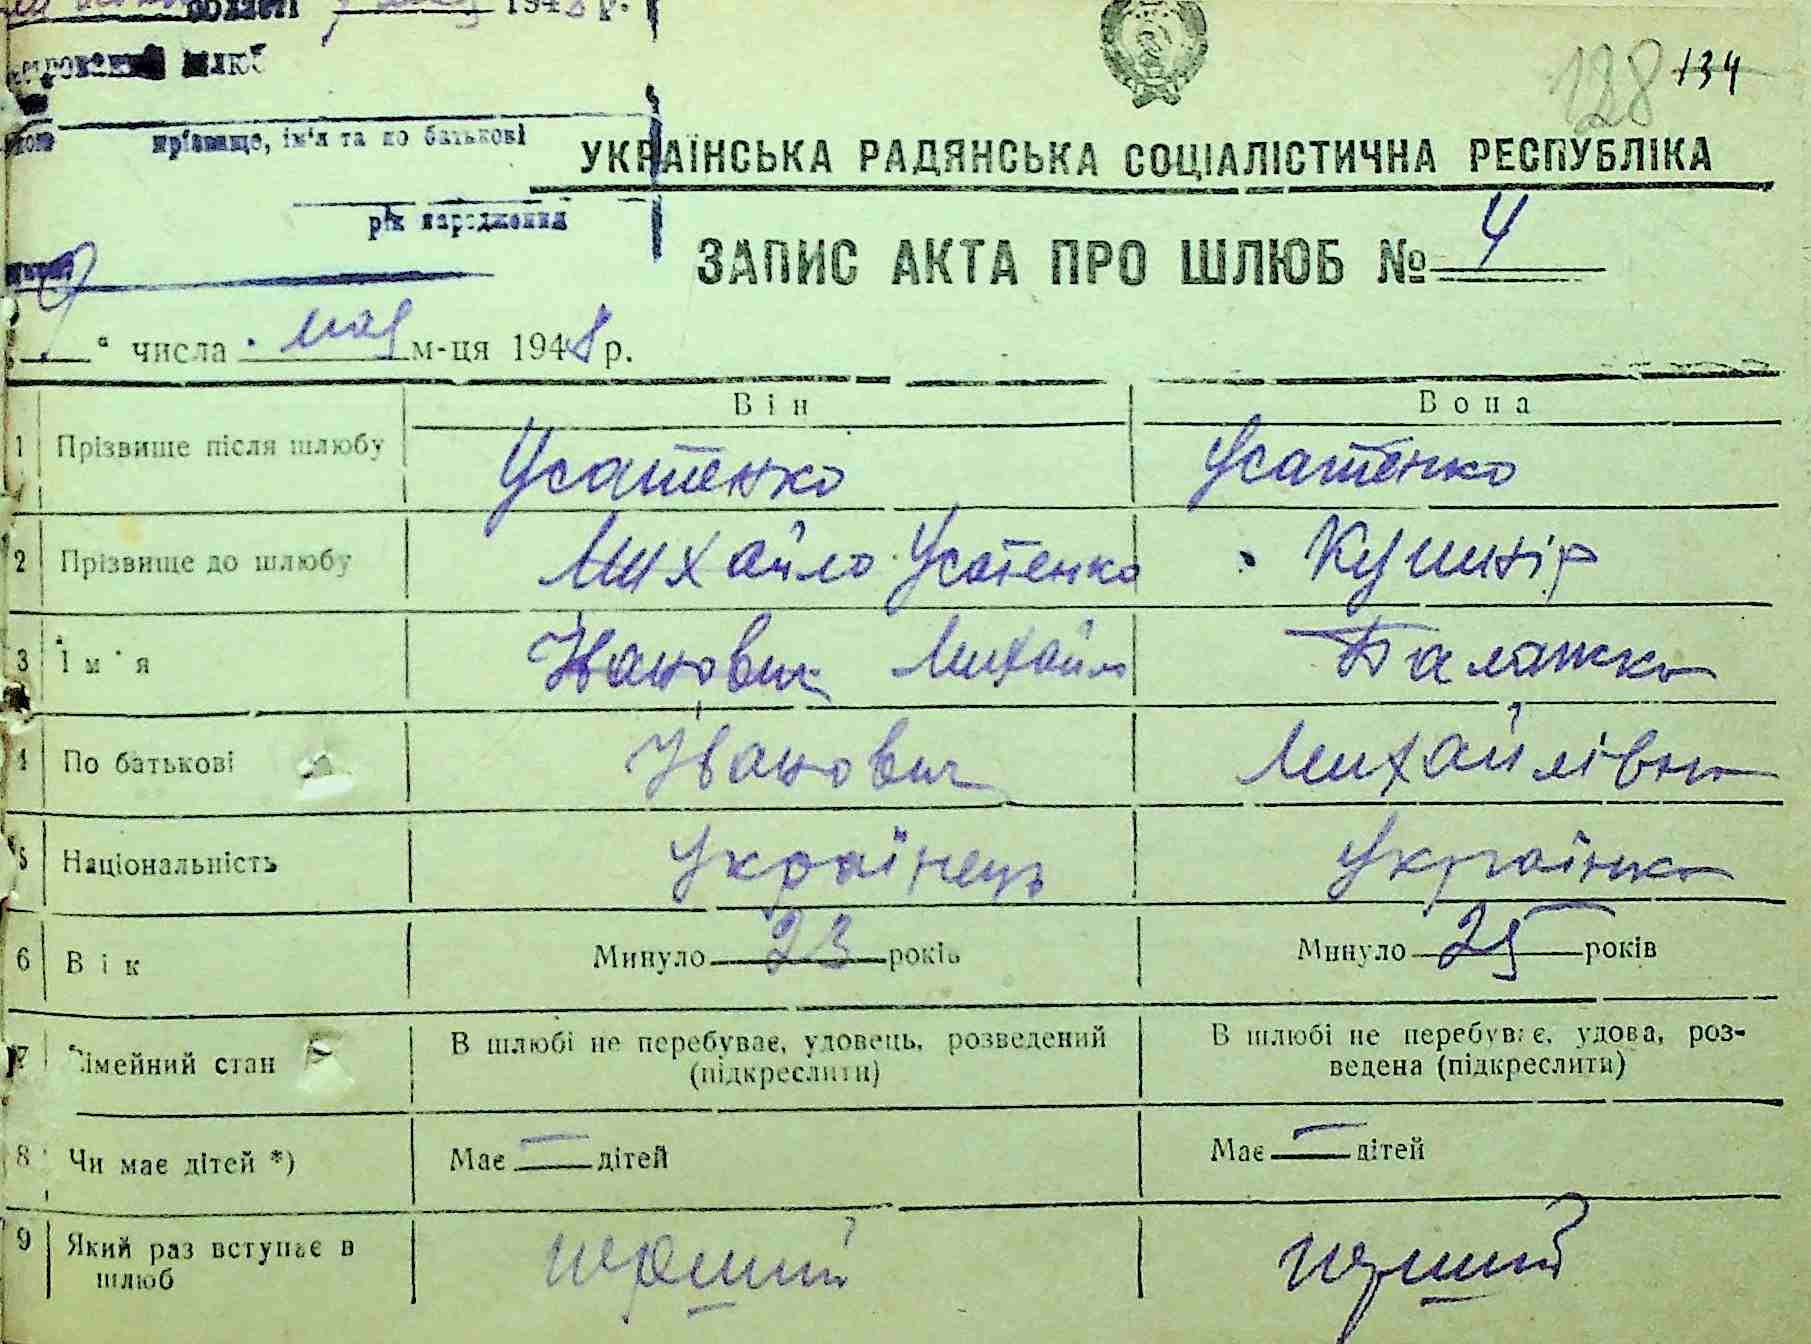 області 1948 р.
шлюб
прізвище, ім'я та по батькові
рік народження
128 134
УКРАЇНСЬКА РАДЯНСЬКА СОЦІАЛІСТИЧНА РЕСПУБЛІКА
ЗАПИС АКТА ПРО ШЛЮБ № 4
" числа мая м-ця 1948 р.
Він Вона
1 Прізвище після шлюбу Усатенко Усатенко
2 Прізвище до шлюбу Михайло Усатенко Кушнір
3 Ім'я Іванович Михайло
4 По батькові Іванович Михайлівна
5 Національність Українець Українка
6 Вік Минуло 23 років Минуло 25 років
7 Сімейний стан В шлюбі не перебуває, удовець, розведений (підкреслити) В шлюбі не перебуває, удова, роз-
ведена (підкреслити)
8 Чи має дітей *) Має — дітей Має — дітей
9 Який раз вступає в шлюб перший перший